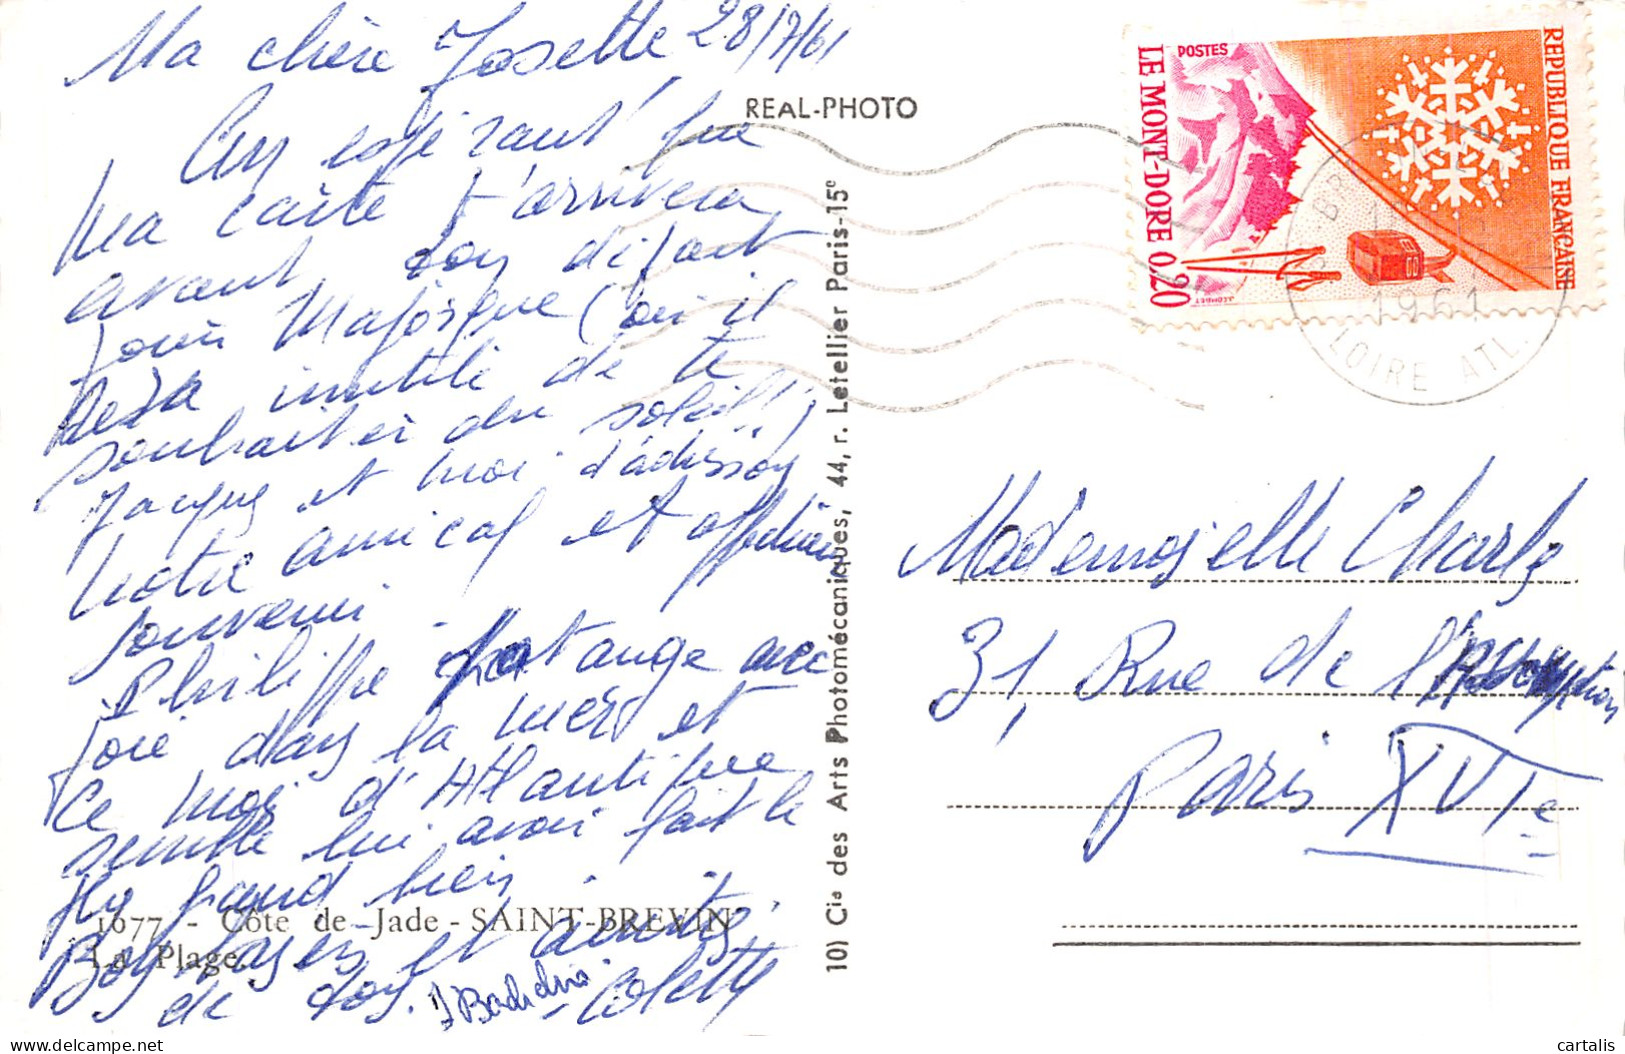 Ma chère Josette 28/7/61
En espérant que
ma carte t'arrivera
avant ton départ
pour Majorque (où il
sera inutile de te
souhaiter du soleil!)
Jacques et moi t'adressons
notre amical et affectueux
souvenir.
Philippe patauge avec
joie dans la mer et
ce mois d'Atlantique
semble lui avoir fait le
plus grand bien
Bons baisers et amitiés
de tous. Colette
REAL-PHOTO
1677 - Côte de Jade - SAINT-BREVIN
La Plage.
10) Cie des Arts Photomécaniques, 44, r. Letellier Paris-15e
POSTES
LE MONT-DORE 0,20
REPUBLIQUE FRANÇAISE
1961
LOIRE ATL.
Mademoiselle Charly
31, Rue de l'Assomption
Paris XVIe
cartalis